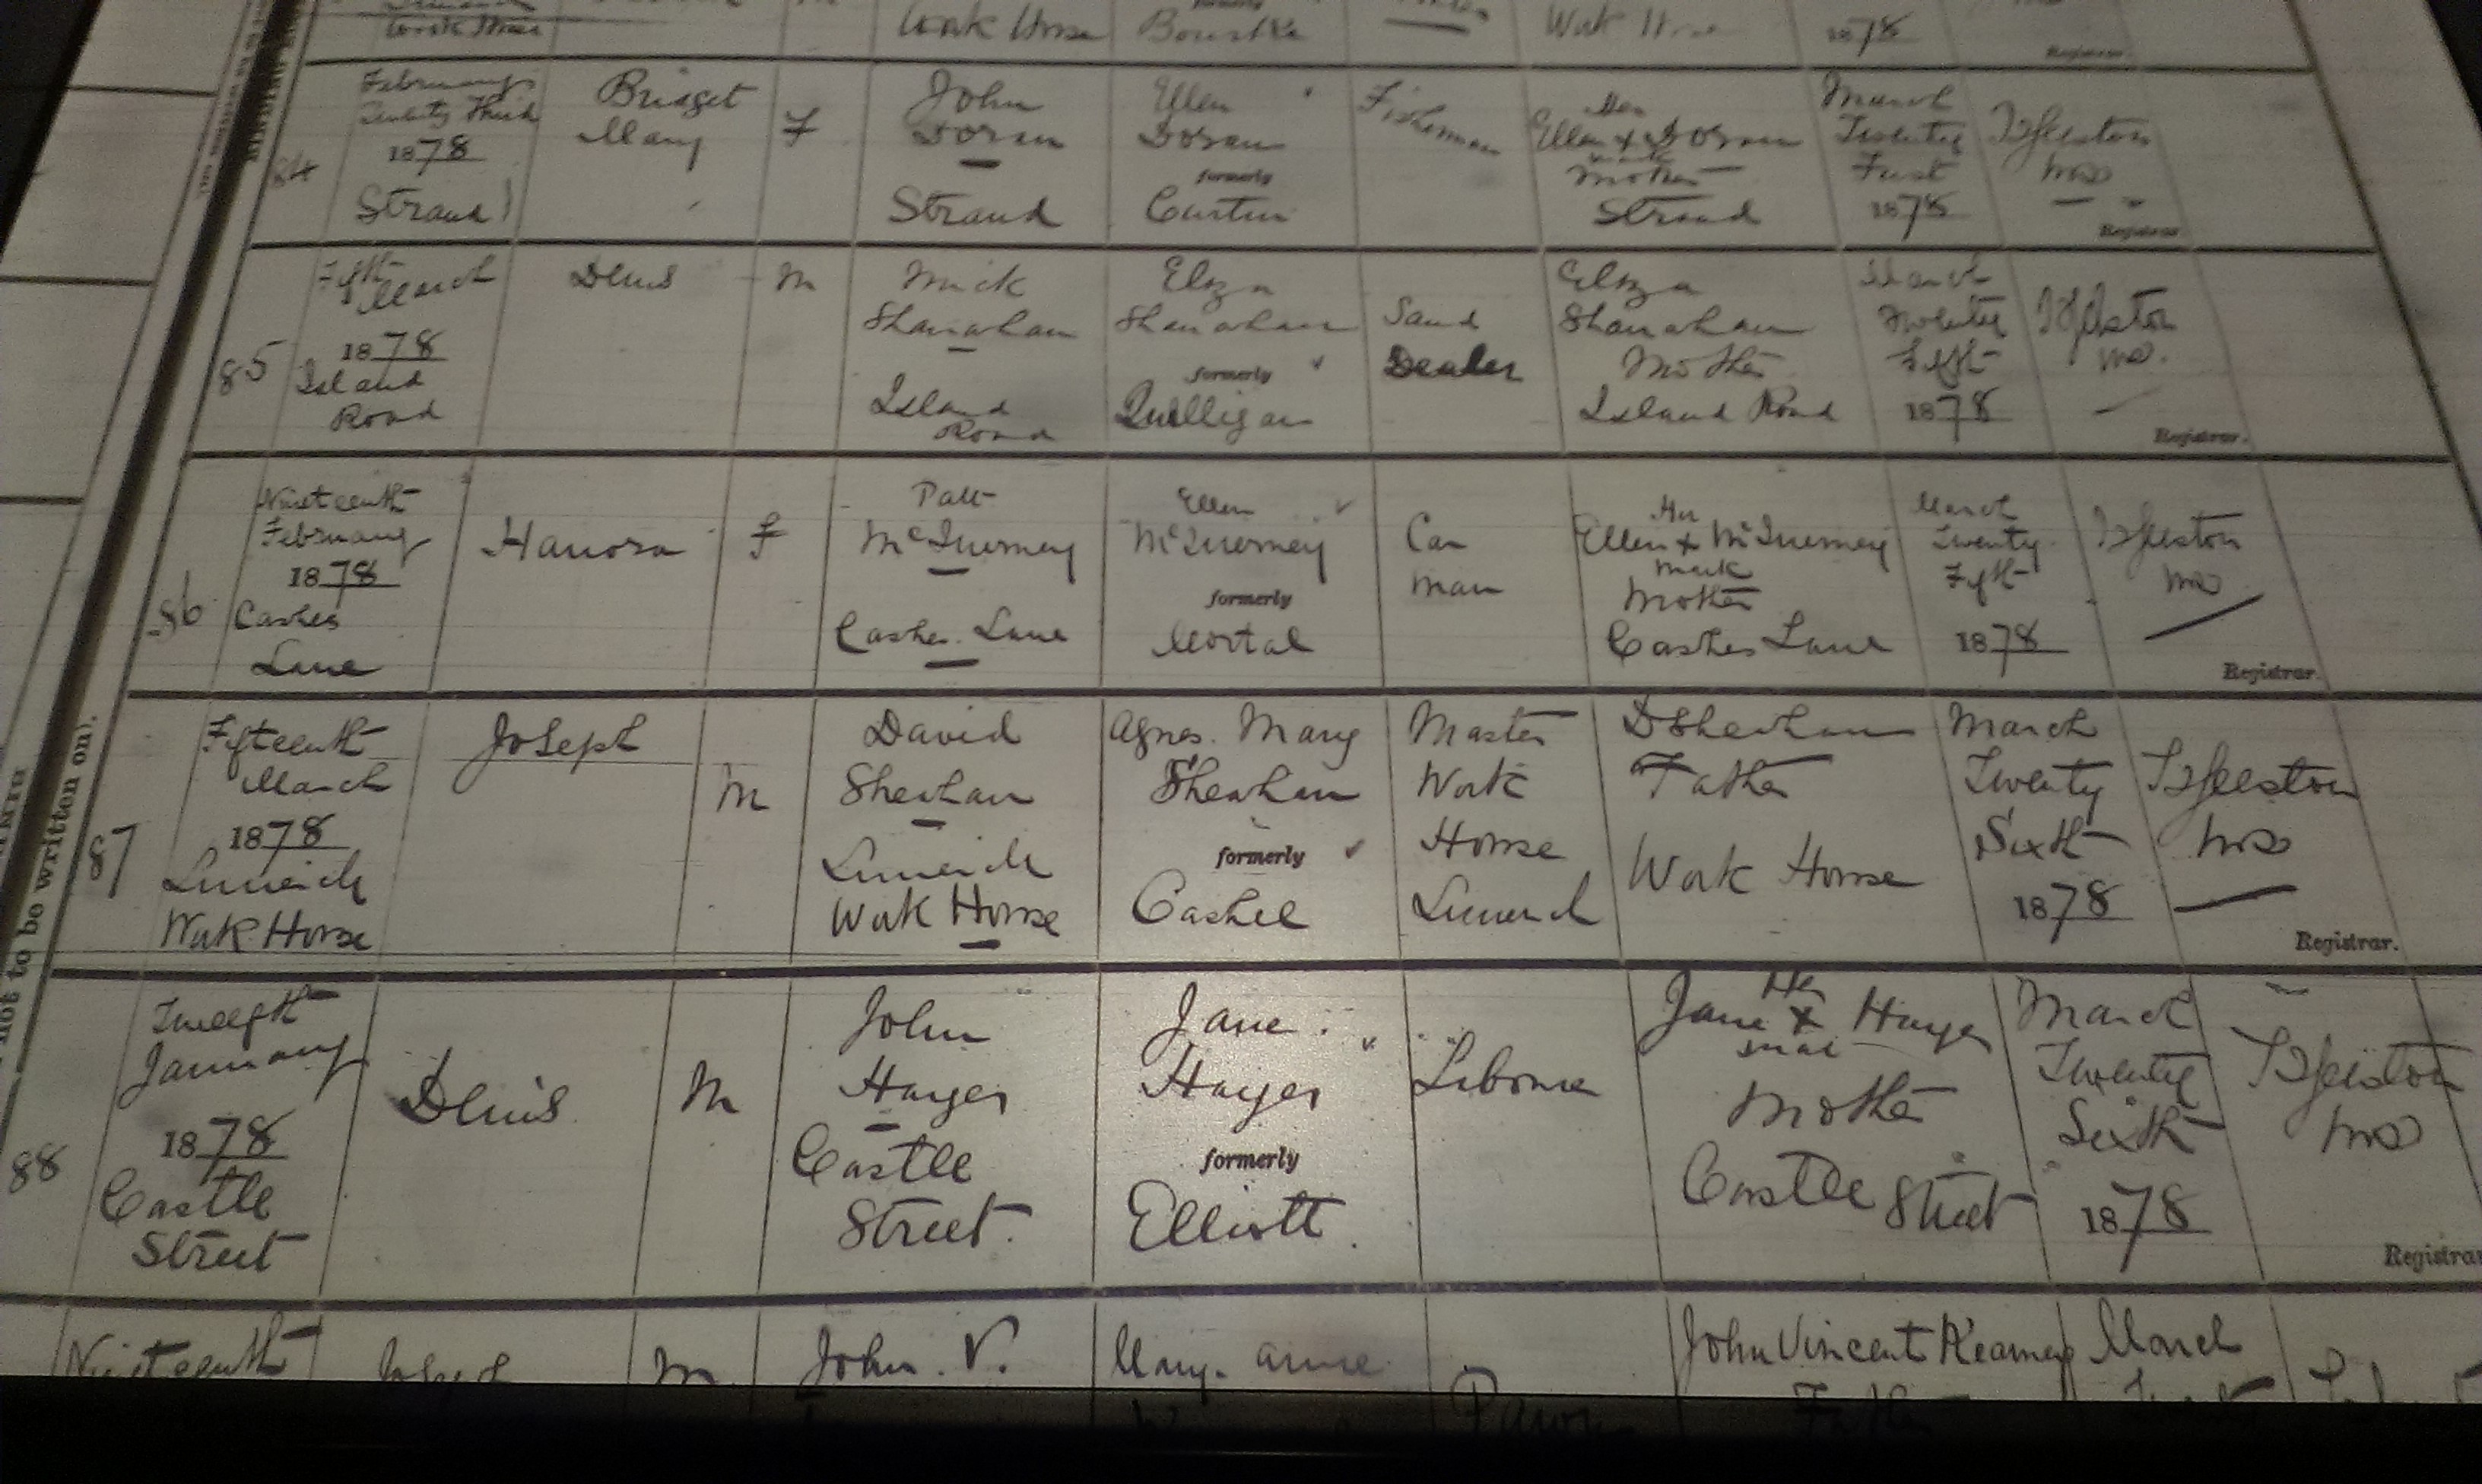 Work House
Work House
Bourke
Work
1878
Registrar.
84
February
Twenty Third
1878
Strand
Bridget
Mary
F
John
Doran
Strand
Ellen
Doran
formerly
Curtin
Fisherman
Her
Ellen x Doran
mark
Mother
Strand
March
Twenty
First
1878
Registrar
85
Fifth
March
1878
Island
Road
Denis
M
Mick
Shanahan
Island
Road
Eliza
Shanahan
formerly
Quilligan
Sand
Dealer
Eliza
Shanahan
Mother
Island Road
March
Twenty
Fifth
1878
Registrar.
86
Nineteenth
February
1878
Cashes
Lane
Hanora
F
Patt
McInerney
Cashes Lane
Ellen
McInerney
formerly
Mortal
Car
man
Her
Ellen x McInerney
mark
Mother
Cashes Lane
March
Twenty
Fifth
1878
Registrar.
not to be written on).
87
Fifteenth
March
1878
Limerick
Work House
Joseph
M
David
Sheehan
Limerick
Work House
Agnes Mary
Sheehan
formerly
Cashel
Master
Work
House
Limerick
D Sheehan
Father
Work House
March
Twenty
Sixth
1878
Registrar.
88
Twelfth
January
1878
Castle
Street
Denis
M
John
Hayes
Castle
Street.
Jane
Hayes
formerly
Elliott.
Labourer
Her
Jane x Hayes
mark
Mother
Castle Street
March
Twenty
Sixth
1878
Registrar
Nineteenth
Joseph
M
John. V.
Mary. Anne
Pawn
John Vincent Kearney
Father
March